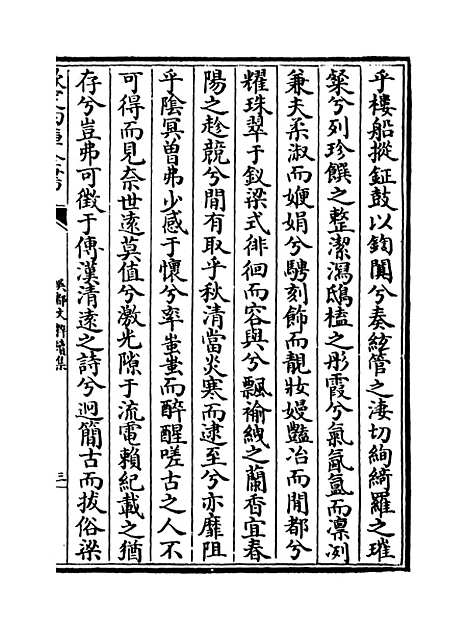 乎樓船摐鉦鼓以鍧闐兮奏絃管之淒切絢綺羅之璀
粲兮列珍饌之整潔瀉鴟榼之彤霞兮氣氤氳而凛冽
兼夫柔淑而婹娟兮騁刻飾而靚妝嫚豔冶而閒都兮
耀珠翠于釵梁式徘徊而容與兮飄褕紲之蘭香宜春
陽之趁競兮閒有取乎秋清當炎寒而逮至兮亦靡阻
乎陰冥曽弗少感于懷兮率蚩蚩而醉醒嗟古之人不
可得而見奈世遠莫值兮激光隙于流電賴紀載之猶
存兮豈弗可徵于傳漢清遠之詩兮迥簡古而拔俗梁
吳都文粹續集
三